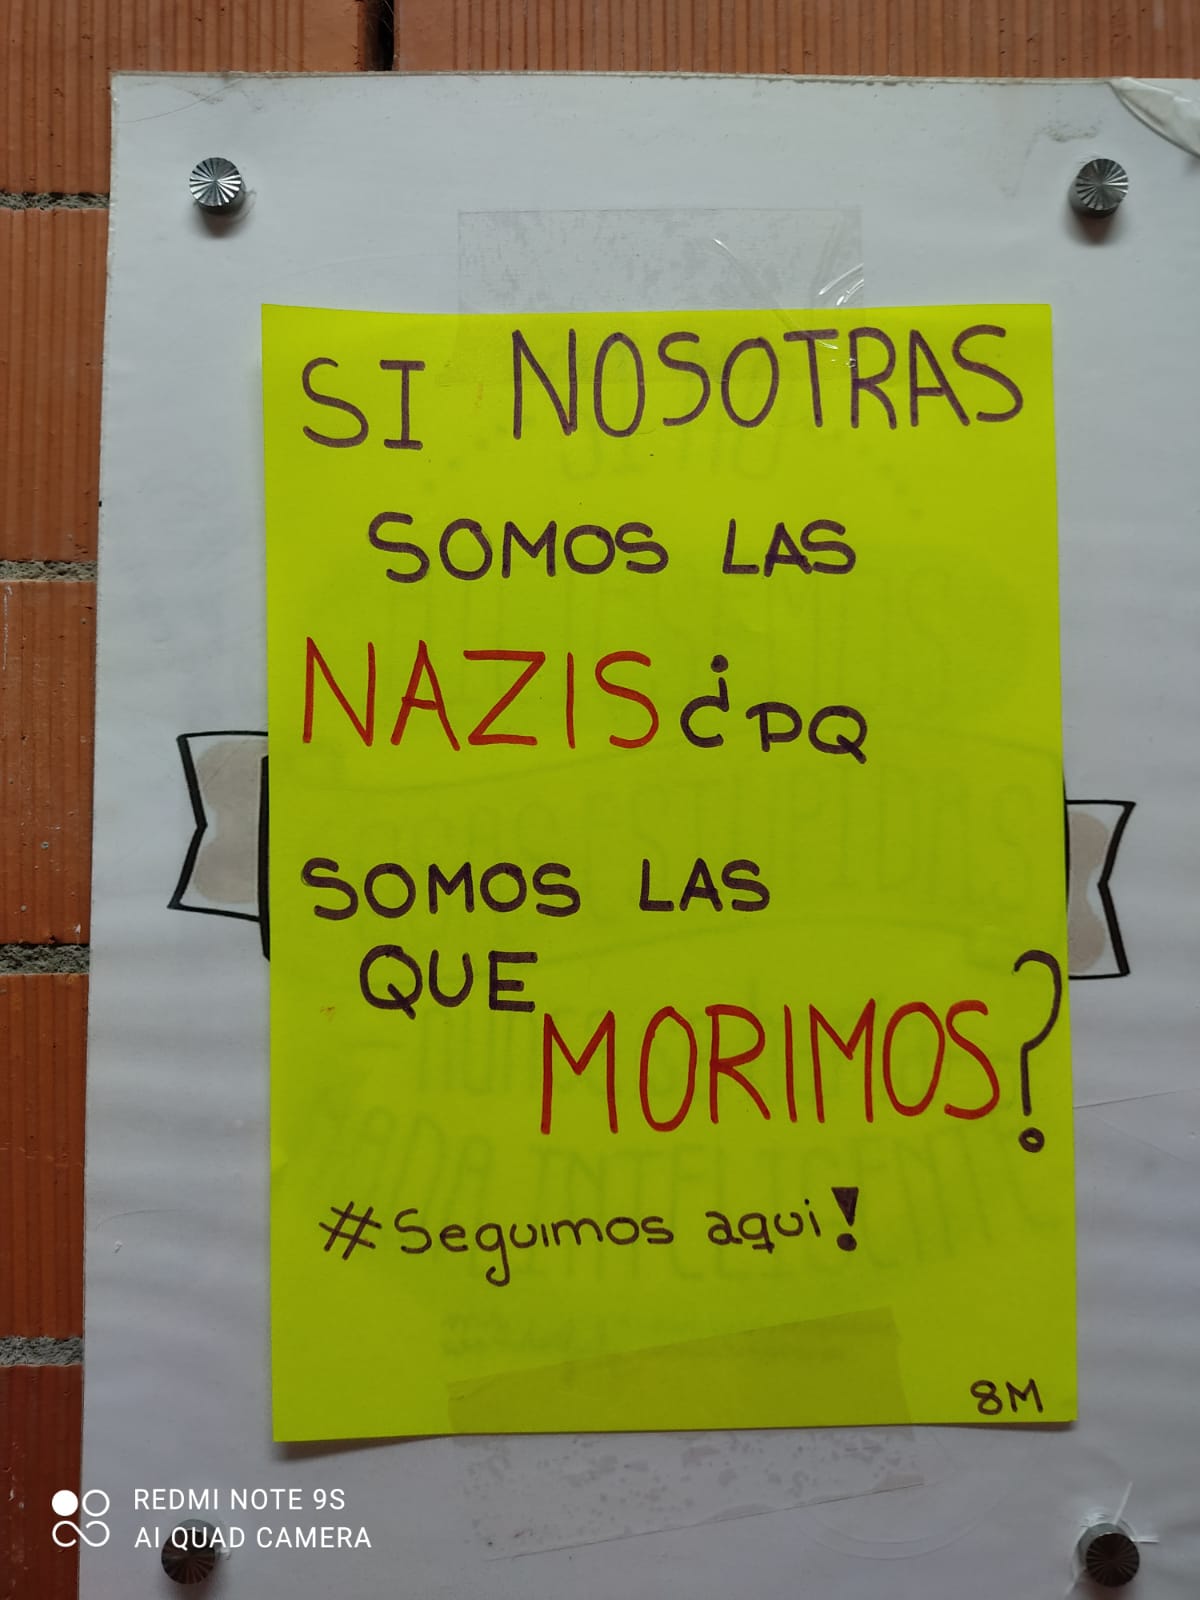 SI NOSOTRAS
SOMOS LAS
NAZIS ¿PQ
SOMOS LAS
QUE
MORIMOS?
#Seguimos aqui!
8M
REDMI NOTE 9S
AI QUAD CAMERA